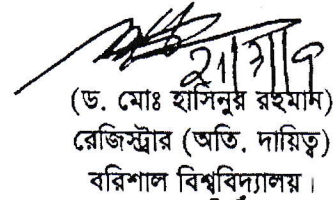 (ড. মোঃ হাসিনুর রহমান)
রেজিস্ট্রার (অতি. দায়িত্ব)
বরিশাল বিশ্ববিদ্যালয়।